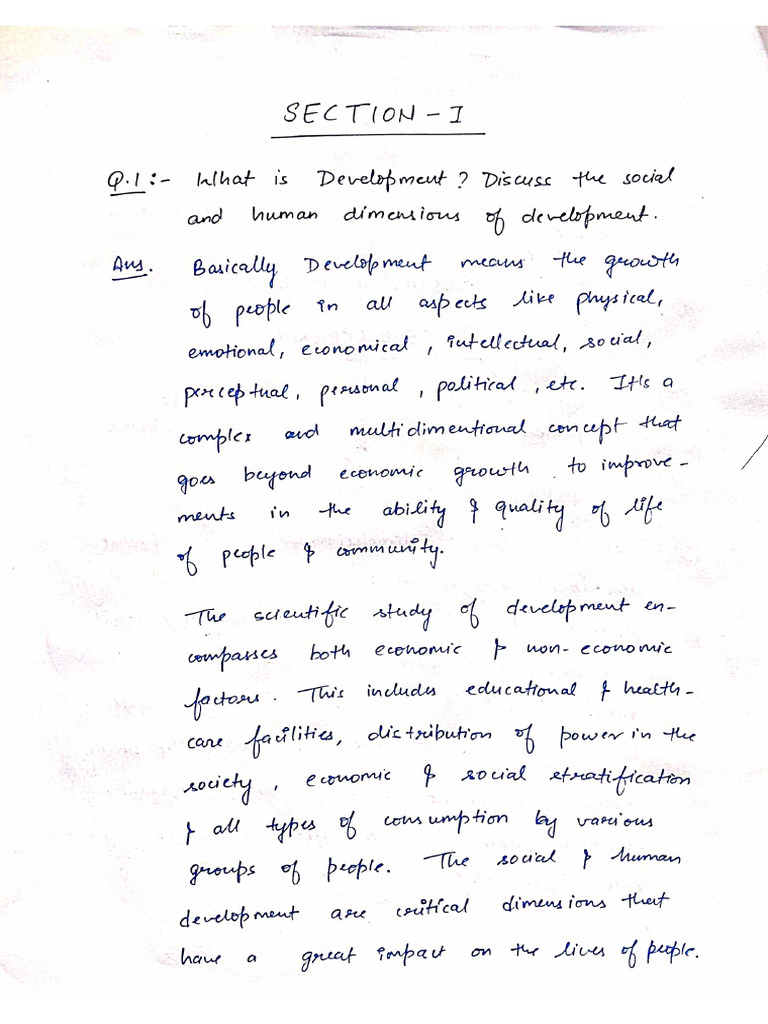 SECTION - I
Q.1 :- What is Development? Discuss the social
and human dimensions of development.
Ans. Basically Development means the growth
of people in all aspects like physical,
emotional, economical, intellectual, social,
perceptual, personal, political, etc. It's a
complex and multidimentional concept that
goes beyond economic growth to improve-
ments in the ability & quality of life
of people & community.
The scientific study of development en-
compasses both economic & non-economic
factors. This includes educational & health-
care facilities, distribution of power in the
society, economic & social stratification
& all types of consumption by various
groups of people. The social & human
development are critical dimensions that
have a great impact on the lives of people.